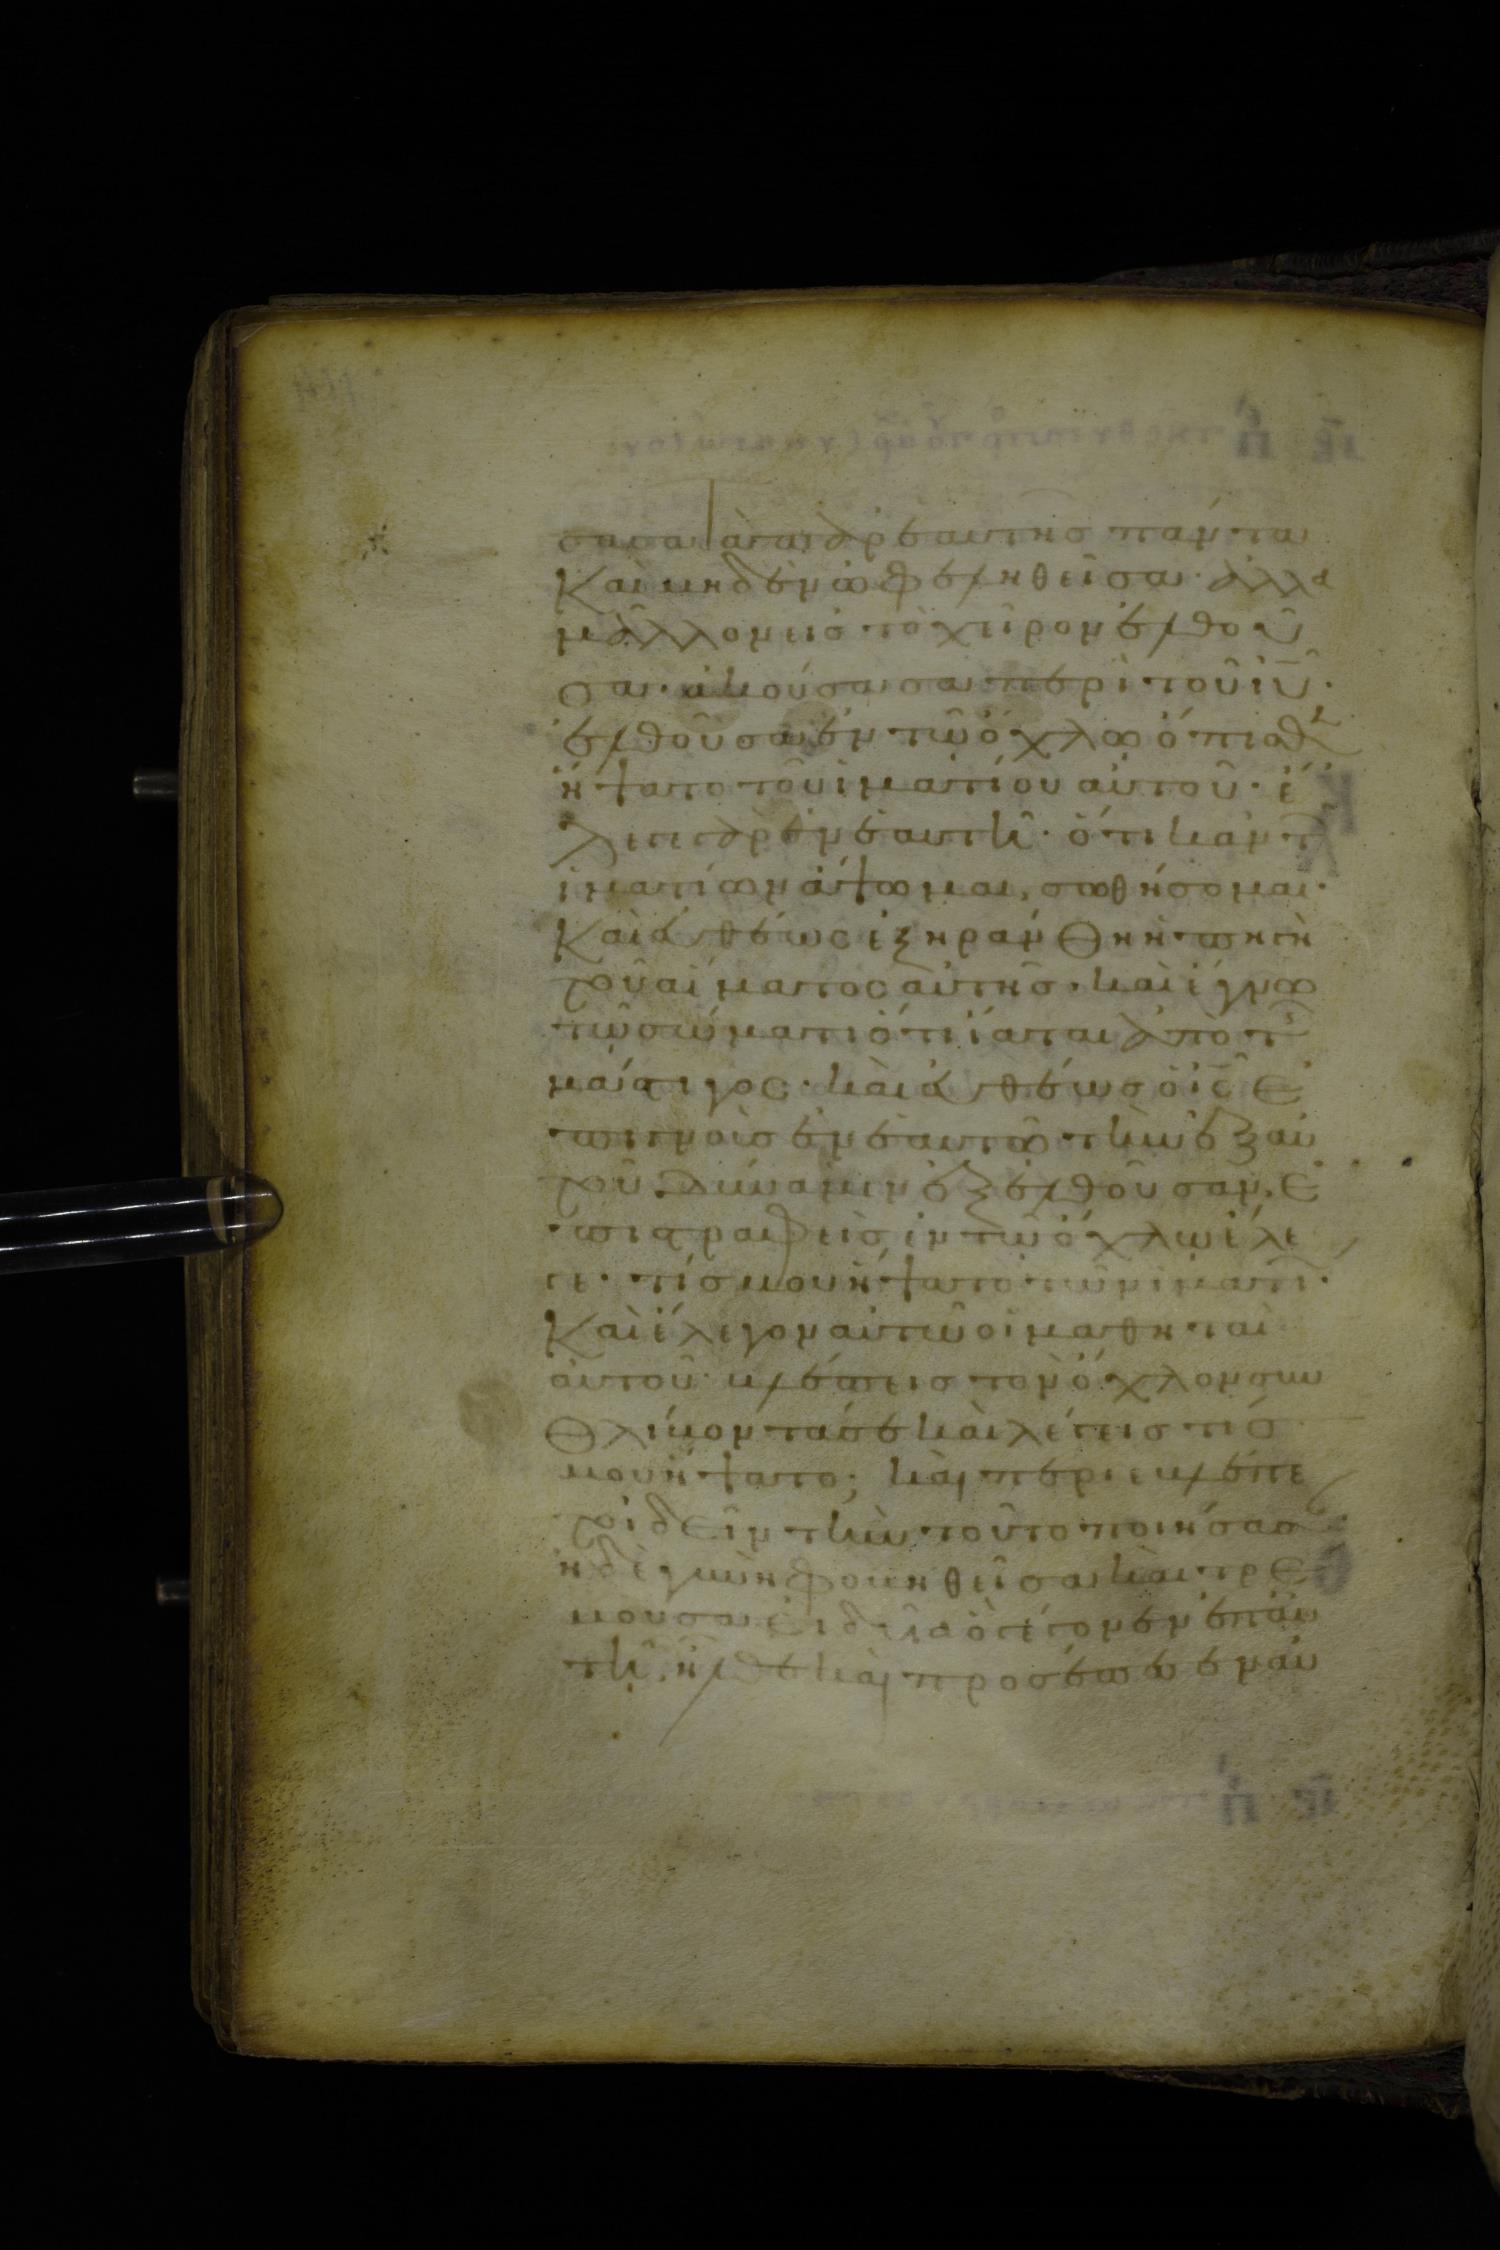 σασα τὰ παρ' ἑαυτῆς πάντα
Καὶ μηδὲν ὠφεληθεῖσα· ἀλλὰ
μᾶλλον εἰς τὸ χεῖρον ἐλθοῦ
σα· ἀκούσασα περὶ τοῦ ιυ·
ἐλθοῦσα ἐν τῶ ὄχλω ὄπισθ
ἥψατο τοῦ ἱματίου αὐτοῦ· ἔ
λεγε γὰρ ἐν ἑαυτῆ· ὅτι κἂν τ
ἱματίων ἅψωμαι, σωθήσομαι·
Καὶ εὐθέως ἐξηράνθη ἡ πηγὴ
τοῦ αἵματος αὐτῆς· καὶ ἔγνω
τῶ σώματι ὅτι ἴαται ἀπὸ τ
μάστιγος· καὶ εὐθέως ὁ ις ἐ
πιγνοὺς ἐν ἑαυτῶ τὴν ἐξ αὐ
τοῦ δύναμιν ἐξελθοῦσαν· ἐ
πιστραφεὶς ἐν τῶ ὄχλω ἔλε
γε· τίς μου ἥψατο τῶν ἱματί·
Καὶ ἔλεγον αὐτῶ οἱ μαθηταὶ
αὐτοῦ· βλέπεις τὸν ὄχλον συν
θλίβοντά σε καὶ λέγεις τίς
μου ἥψατο; καὶ περιεβλέπε
το ἰδεῖν τὴν τοῦτο ποιήσασ
ἡ δὲ γυνὴ φοβηθεῖσα καὶ τρέ
μουσα εἰδυῖα ὃ γέγονεν ἐπ' αὐ
τῆ· ἦλθε καὶ προσέπεσεν αὐ